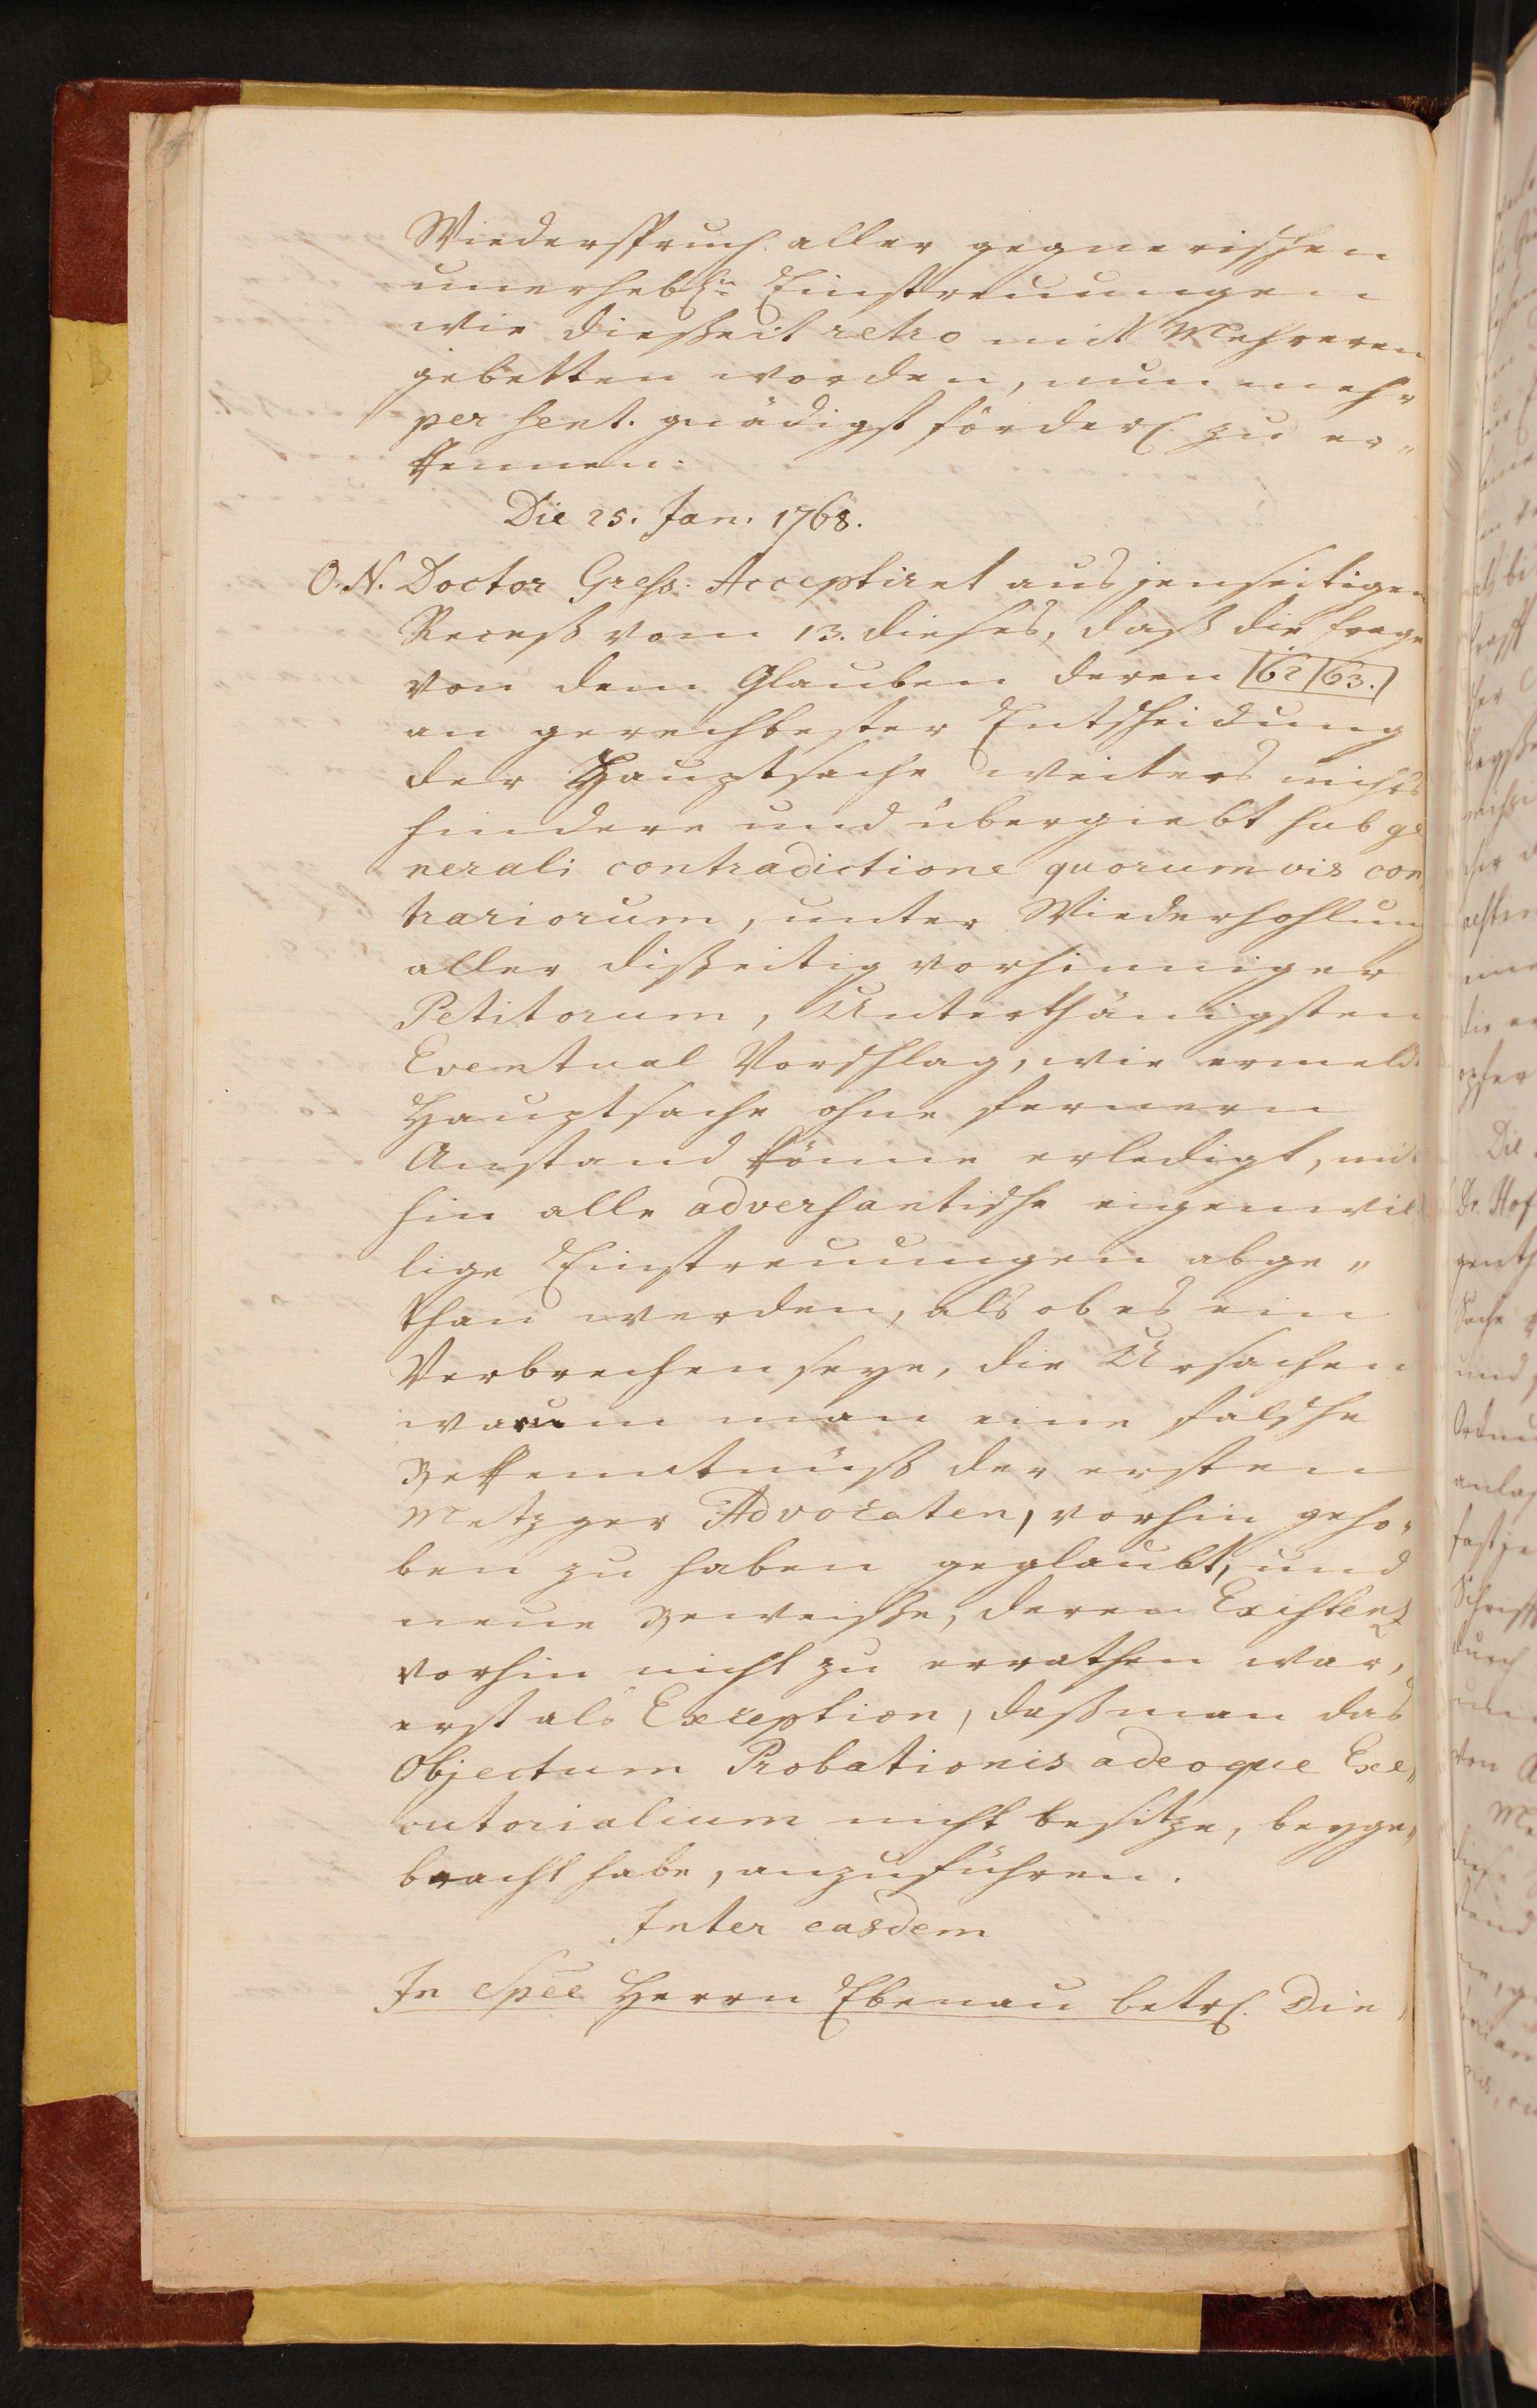 Wiederspruch aller gegnerischen
unerhebl:n Einstreuungen
wie diesseit retro mit Mehreren
gebetten worden, nun mehr
per sent. gnädigst förderl. zu er„
kennen.
Die 25. Jan. 1768.
O. N. Doctor Gress. Acceptiret aus jenseitigen
Recess vom 13. dieses, daß die frage
von dem Glauben deren 62 63.
an gerechtester Entscheidung
der Hauptsache weiters nichts
hindere und übergiebt sub ge
nerali contradictione quorumvis con
trariorum, unter Wiederhohlung
aller disseitig vorhinniger
Petitorum, Unterthänigsten
Eventual Vorschlag, wie ermeld
Hauptsache ohne fernern
Anstand könne erledigt, mit
hin alle adversantische eigenwil
lige Einstreuungen abge„
than werden, als ob es ein
Verbrechen seye, die Ursachen
warum man eine falsche
Bekenntnüß der ersten
Metzger Advocaten, vorhin geho„
ben zu haben geglaubt, und
neue Beweisse, deren Existenz
vorhin nicht zu errathen war,
erst als Exception, daß man das
Objectum Probationis adeoque Exe„
cutorialium nicht besitze, beyge„
bracht habe, anzuführen.
Inter easdem
In Spec̄e Herrn Ebenau betrl. Die„